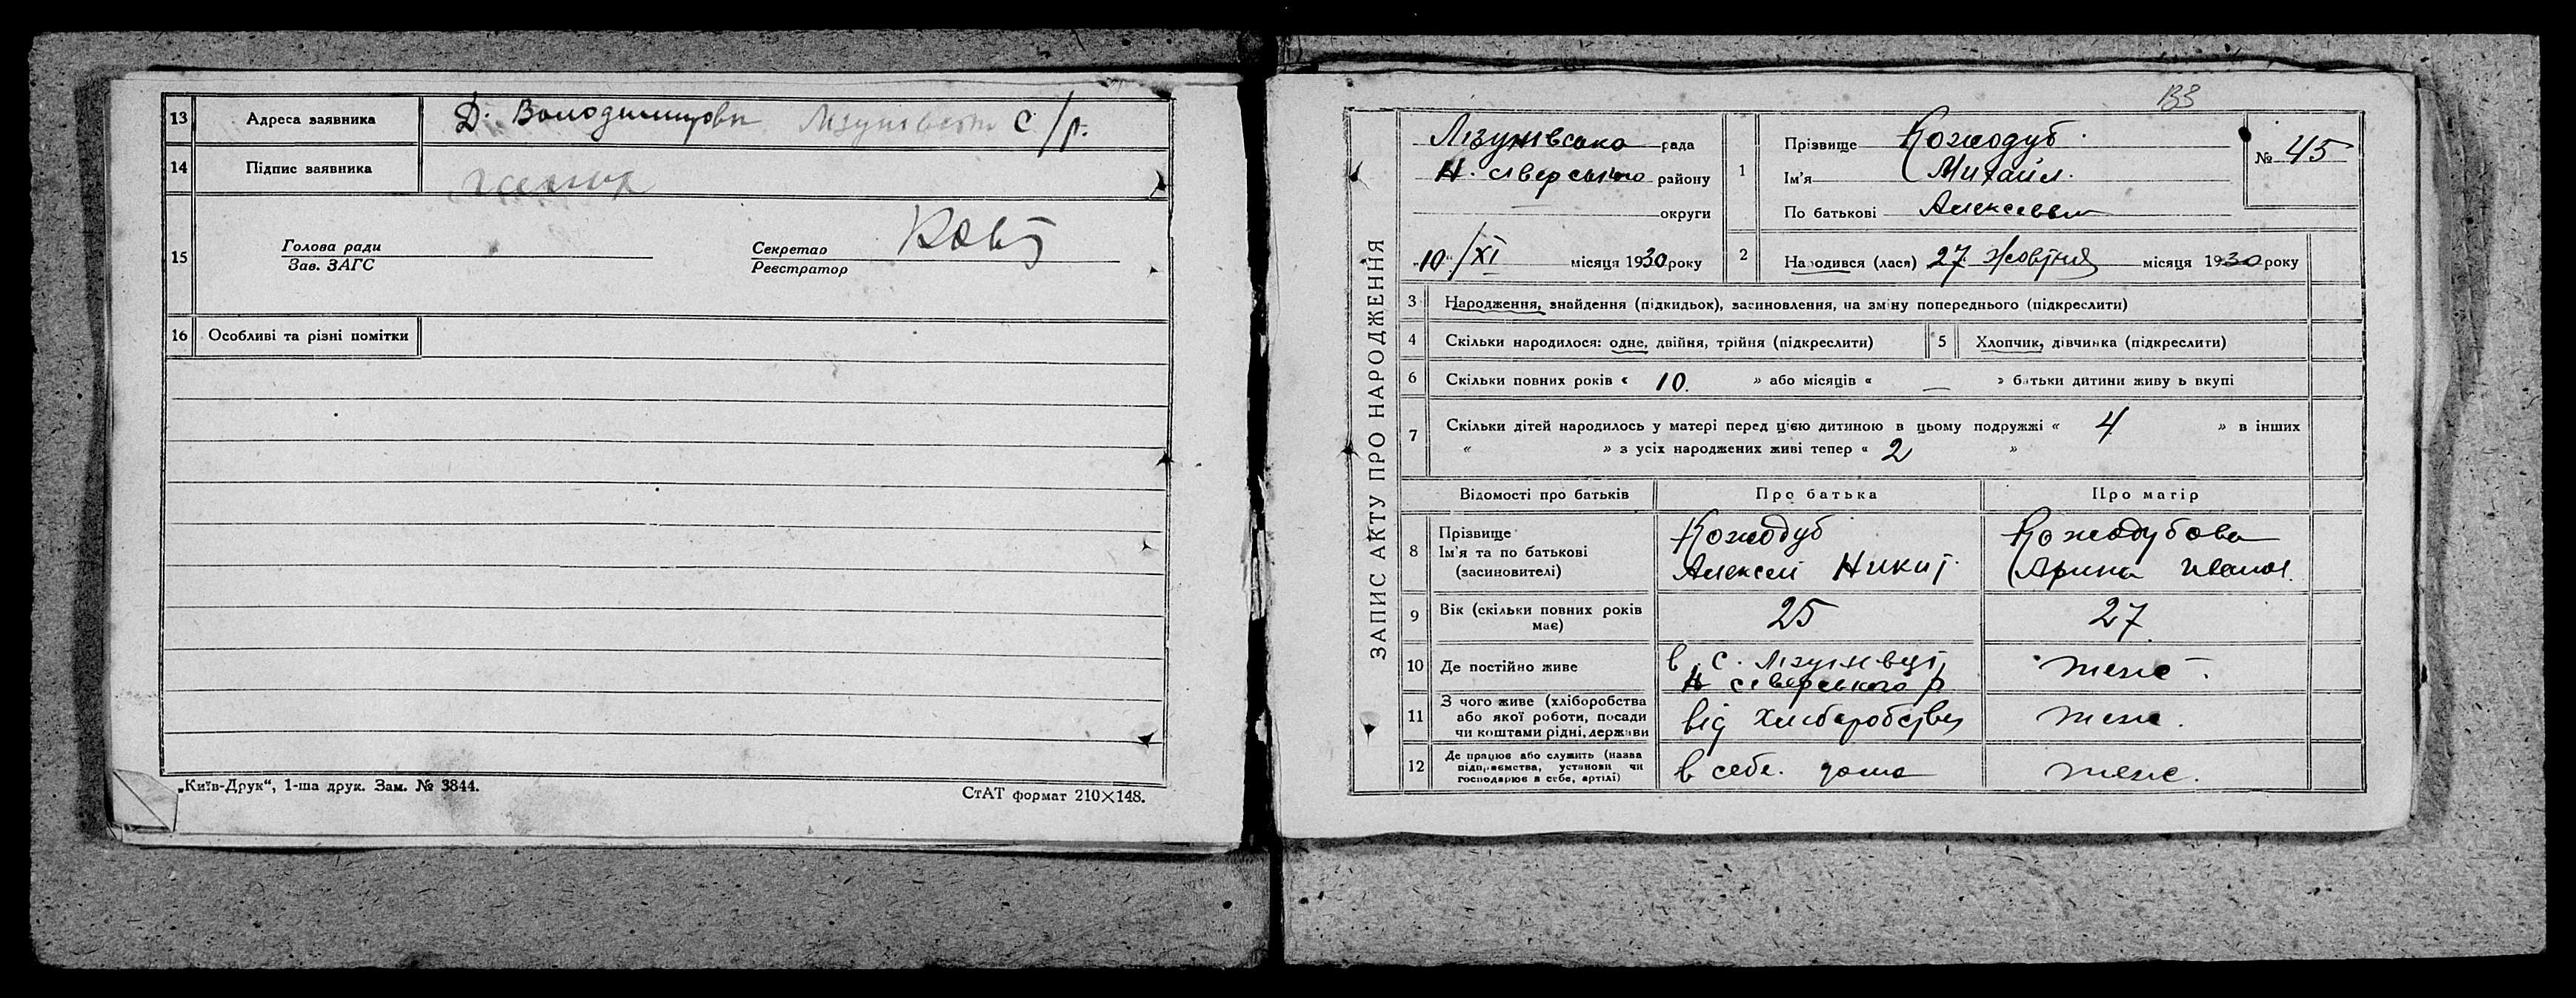 13 Адреса заявника Д. Володимировк Лізунівськ с/р.
14 Підпис заявника
15 Голова ради Секретар
Зав. ЗАГС Реєстратор
16 Особливі та різні помітки
„Київ-Друк“, 1-ша друк. Зам. № 3844.
СтАТ формат 210×148.
133
ЗАПИС АКТУ ПРО НАРОДЖЕННЯ
Лізунівсько рада
Н. сіверського району
округи
„10“/XI місяця 1930 року
1 Прізвище Кожодуб
Ім'я Михаил.
По батькові Алексеев
№ 45
2 Народився (лася) 27 жовтня місяця 1930 року
3 Народження, знайдення (підкидьок), засиновлення, на зміну попереднього (підкреслити)
4 Скільки народилося: одне, двійня, трійня (підкреслити) 5 Хлопчик, дівчинка (підкреслити)
6 Скільки повних років « 10. » або місяців « — » батьки дитини живуть вкупі
7 Скільки дітей народилось у матері перед цією дитиною в цьому подружжі « 4 » в інших
« » з усіх народжених живі тепер « 2 »
Відомості про батьків Про батька Про матір
8 Прізвище Ім'я та по батькові (засиновителі)
Кожодуб Алексей Никит.
Кожодубова Арина Иванов.
9 Вік (скільки повних років має) 25 27
10 Де постійно живе в с. Лізунівці, Н сіверського р теже.
11 З чого живе (хліборобства або якої роботи, посади чи коштами рідні, держави від хлиборобства теже.
12 Де працює або служить (назва підприємства, установи чи господарює в себе, артілі) в себе. дома теже.